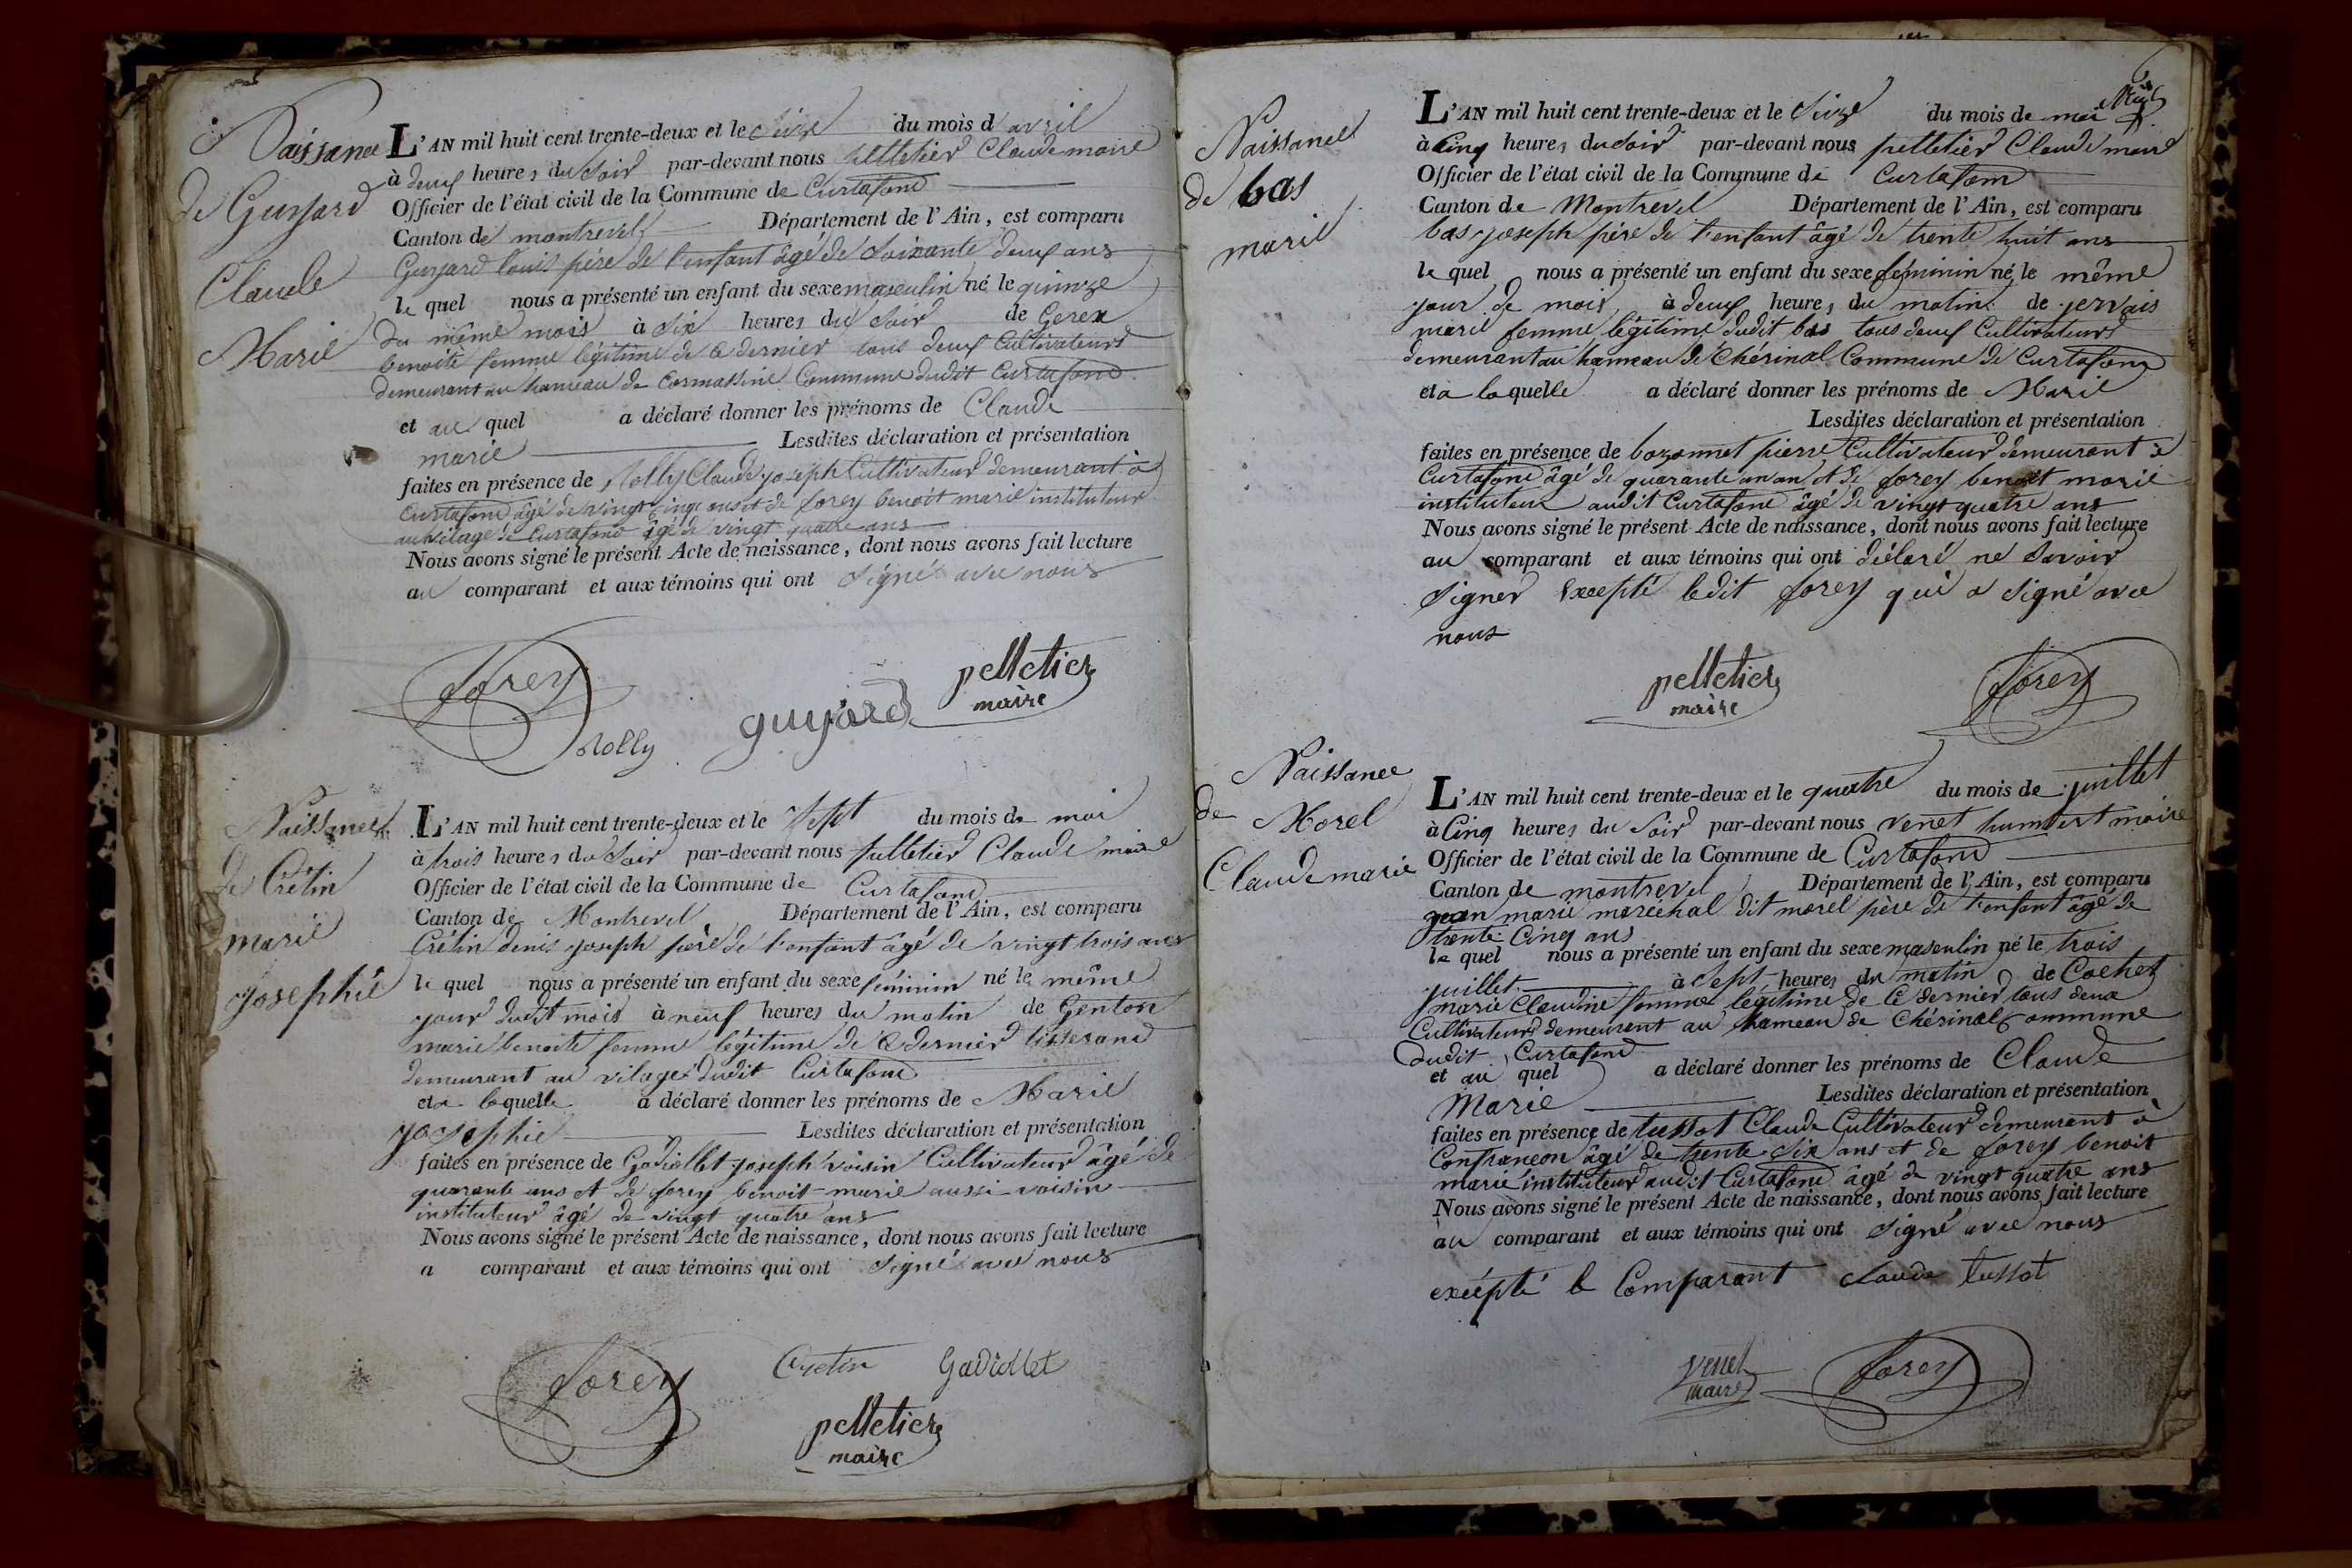 Naissance
de Guyard
Claude
Marie
L'AN mil huit cent trente-deux et le Seize du mois d'avril
à deux heures du Soir par-devant nous pelletier Claude maire
Officier de l'état civil de la Commune de Curtafond
Canton de montrevel Département de l'Ain, est comparu
Guyard louis père de l'enfant âgé de Soixante deux ans
le quel nous a présenté un enfant du sexe masculin né le quinze
du même mois à Six heures du Soir de Gerex
benoite femme légitime de ce dernier tous deux Cultivateurs
demeurant au hameau de Cormassine Commune dudit Curtafond
et au quel a déclaré donner les prénoms de Claude
marie Lesdites déclaration et présentation
faites en présence de Nolly Claude joseph Cultivateur demeurant à
Curtafond âgé de vingt Cinq ans et de forey benoit marie instituteur
au vilage de Curtafond âgé de vingt quatre ans
Nous avons signé le présent Acte de naissance, dont nous avons fait lecture
au comparant et aux témoins qui ont Signé avec nous
forey
Nolly
guyard
pelletier
maire
Naissance
de Crétin
marie
josephie
L'AN mil huit cent trente-deux et le Sept du mois de mai
à trois heures du Soir par-devant nous pelletier Claude maire
Officier de l'état civil de la Commune de Curtafond
Canton de Montrevel Département de l'Ain, est comparu
Crétin denis joseph père de l'enfant âgé de vingt trois ans
le quel nous a présenté un enfant du sexe féminin né le même
jour dudit mois à neuf heures du matin de Genton
marie benoite femme légitime de ce dernier tisserand
demeurant au vilage dudit Curtafond
et a laquelle a déclaré donner les prénoms de Marie
josephie Lesdites déclaration et présentation
faites en présence de Gadiollet joseph voisin Cultivateur âgé de
quarante ans et de forey benoit marie aussi voisin
instituteur âgé de vingt quatre ans
Nous avons signé le présent Acte de naissance, dont nous avons fait lecture
a comparant et aux témoins qui ont Signé avec nous
forey
Cretin
Gadiollet
pelletier
maire
Naissance
de bas
marie
L'AN mil huit cent trente-deux et le Seize du mois de mai
à Cinq heures du Soir par-devant nous pelletier Claude maire
Officier de l'état civil de la Commune de Curtafond
Canton de Montrevel Département de l'Ain, est comparu
bas joseph père de l'enfant âgé de trente huit ans
le quel nous a présenté un enfant du sexe féminin né le même
jour de mois à deux heures du matin de jervais
marie femme légitime dudit bas tous deux Cultivateurs
demeurant au hameau de Chérinal Commune de Curtafond
et a laquelle a déclaré donner les prénoms de Marie
Lesdites déclaration et présentation
faites en présence de bozonnet pierre Cultivateur demeurant à
Curtafond âgé de quarante un an et de forey benoit marie
instituteur audit Curtafond âgé de vingt quatre ans
Nous avons signé le présent Acte de naissance, dont nous avons fait lecture
au comparant et aux témoins qui ont déclaré ne Savoir
Signer Excepté ledit forey qui a Signé avec
nous
pelletier
maire
forey
Naissance
de Morel
Claude marie
L'AN mil huit cent trente-deux et le quatre du mois de juillet
à Cinq heures du Soir par-devant nous venet humbert maire
Officier de l'état civil de la Commune de Curtafond
Canton de montrevel Département de l'Ain, est comparu
jean marie maréchal dit morel père de l'enfant âgé de
trente Cinq ans
le quel nous a présenté un enfant du sexe masculin né le trois
juillet à Sept heures du matin de Cochet
marie Claudine femme légitime de Ce dernier tous deux
Cultivateurs demeurant au hameau de Chérinal Commune
dudit Curtafond
et au quel a déclaré donner les prénoms de Claude
Marie Lesdites déclaration et présentation
faites en présence de tussot Claude Cultivateur demeurant à
Confrancon âgé de trente Six ans et de forey benoit
marie instituteur audit Curtafond âgé de vingt quatre ans
Nous avons signé le présent Acte de naissance, dont nous avons fait lecture
au comparant et aux témoins qui ont Signé avec nous
excépté le Comparant claude tussot
venet
maire
forey